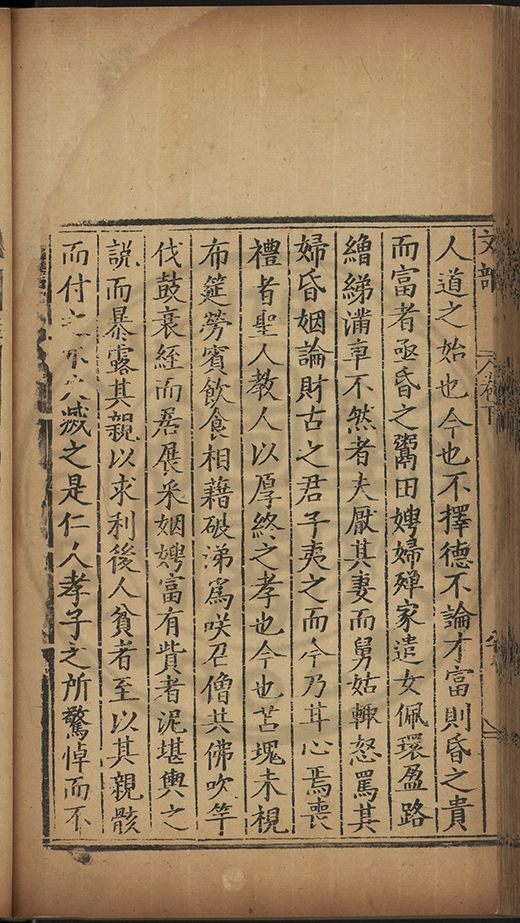 文部
人道之始也今也不擇德不論才富則昏之貴
而富者亟昏之鬻田娉婦殫家遣女佩環盈路
繒綈滿車不然者夫厭其妻而舅姑輙怒罵其
婦昏姻論財古之君子夷之而今乃耳心焉喪
禮者聖人教人以厚終之孝也今也苫塊未視
布筵勞賓飲食相藉破涕爲咲召僧共佛吹竽
伐鼓衰絰而居展采姻娉富有貲者泥堪輿之
説而暴露其親以求利後人貧者至以其親骸
而付之水火滅之是仁人孝子之所驚悼而不